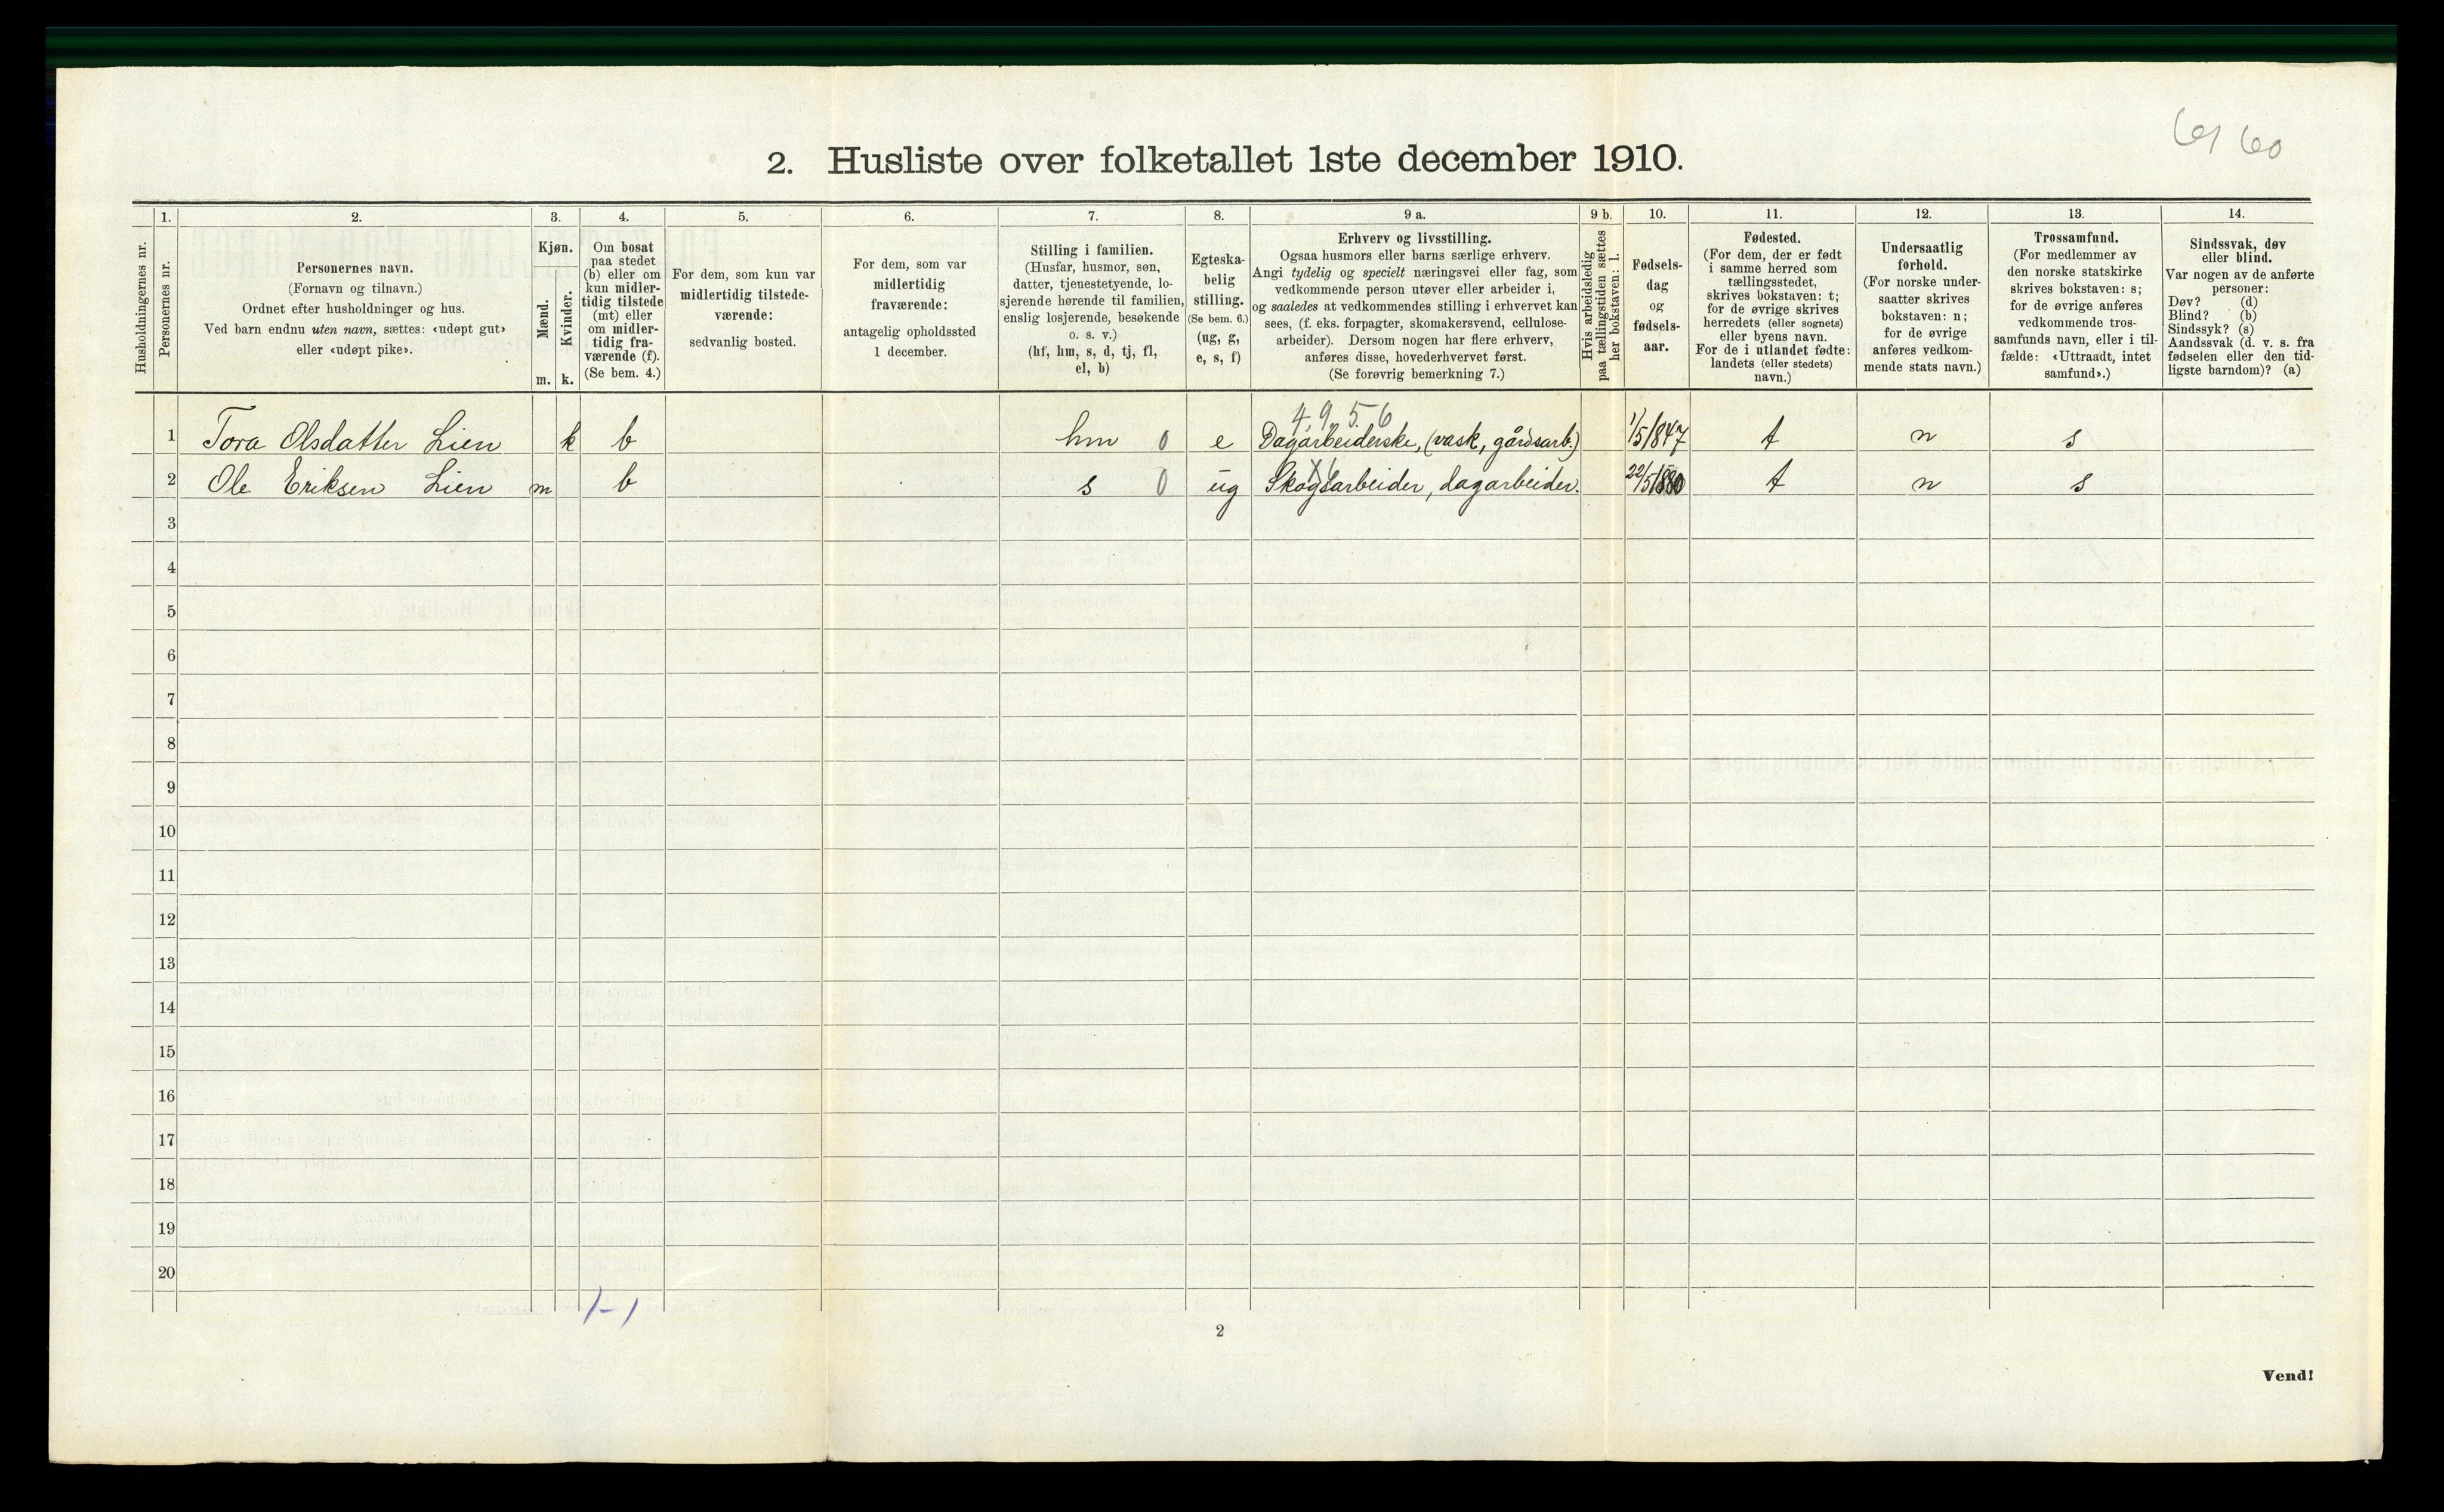 61 60
2. Husliste over folketallet 1ste december 1910.
Husholdningernes nr.
1.
Personernes nr.
2.
Personernes navn.
(Fornavn og tilnavn.)
Ordnet efter husholdninger og hus.
Ved barn endnu uten navn, sættes: «udøpt gut»
eller «udøpt pike».
3.
Kjøn.
Mænd.
m.
Kvinder.
k.
4.
Om bosat
paa stedet
(b) eller om
kun midler-
tidig tilstede
(mt) eller
om midler-
tidig fra-
værende (f).
(Se bem. 4.)
5.
For dem, som kun var
midlertidig tilstede-
værende:
sedvanlig bosted.
6.
For dem, som var
midlertidig
fraværende:
antagelig opholdssted
1 december.
7.
Stilling i familien.
(Husfar, husmor, søn,
datter, tjenestetyende, lo-
sjerende hørende til familien,
enslig losjerende, besøkende
o. s. v.)
(hf, hm, s, d, tj, fl,
el, b)
8.
Egteska-
belig
stilling.
(Se bem. 6.)
(ug, g,
e, s, f)
9 a.
Erhverv og livsstilling.
Ogsaa husmors eller barns særlige erhverv.
Angi tydelig og specielt næringsvei eller fag, som
vedkommende person utøver eller arbeider i,
og saaledes at vedkommendes stilling i erhvervet kan
sees, (f. eks. forpagter, skomakersvend, cellulose-
arbeider). Dersom nogen har flere erhverv,
anføres disse, hovederhvervet først.
(Se forøvrig bemerkning 7.)
9 b.
Hvis arbeidsledig
paa tællingstiden sættes
her bokstaven: l.
10.
Fødsels-
dag
og
fødsels-
aar.
11.
Fødested.
(For dem, der er født
i samme herred som
tællingsstedet,
skrives bokstaven: t;
for de øvrige skrives
herredets (eller sognets)
eller byens navn.
For de i utlandet fødte:
landets (eller stedets)
navn.)
12.
Undersaatlig
forhold.
(For norske under-
saatter skrives
bokstaven: n;
for de øvrige
anføres vedkom-
mende stats navn.)
13.
Trossamfund.
(For medlemmer av
den norske statskirke
skrives bokstaven: s;
for de øvrige anføres
vedkommende tros-
samfunds navn, eller i til-
fælde: «Uttraadt, intet
samfund».)
14.
Sindssvak, døv
eller blind.
Var nogen av de anførte
personer:
Døv? (d)
Blind? (b)
Sindssyk? (s)
Aandssvak (d. v. s. fra
fødselen eller den tid-
ligste barndom)? (a)
4,9,5.6
1 Tora Olsdatter Lien k b hm 0 e Dagarbeiderske, (vask, gårdsarb.) 1/5/847 t n s
2 Ole Eriksen Lien m b s 0 ug Skogsarbeider, dagarbeider. 22/5/880 t n s
3
4
5
6
7
8
9
10
11
12
13
14
15
16
17
18
19
20
1-1
2
Vend!